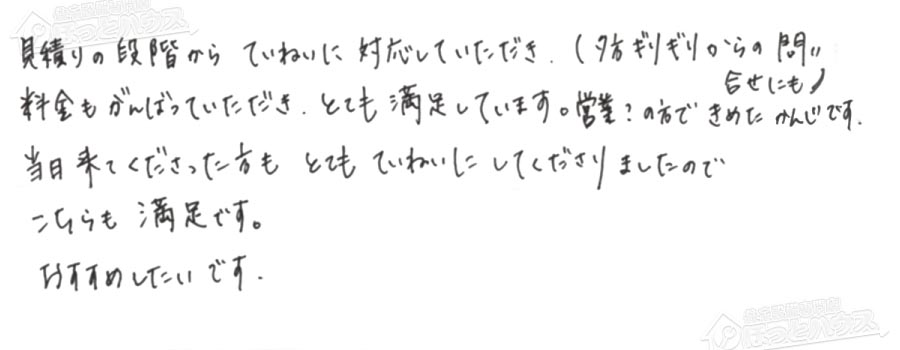 見積りの段階から ていねいに 対応していただき、(夕方ギリギリからの問い
合せにも)
料金もがんばっていただき、とても満足しています。営業?の方で きめた かんじです。
当日来てくださった方も とても ていねいに してくださりましたので
こちらも 満足です。
おすすめしたいです。
ほっとハウス
ほっとハウス